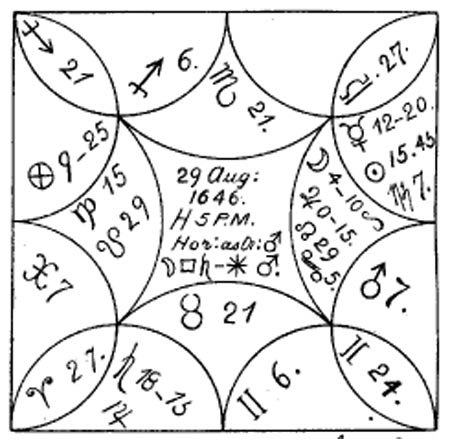 ♐ 21
♐ 6.
♏ 21.
♎ 27.
☿ 12-20.
☉ 15.45
♍ 7.
⊕ 9-25
♑ 15
☋ 29
29 Aug:
1646.
H 5 P.M.
Hor: astr: ♂
☽ □ ♄-✶ ♂.
☽ 4-10
♃ 0-15.
☊ 29
5.
♂ 7.
♓ 7
♉ 21
♈ 27.
♄ 18-15
♊ 6.
♊ 24.